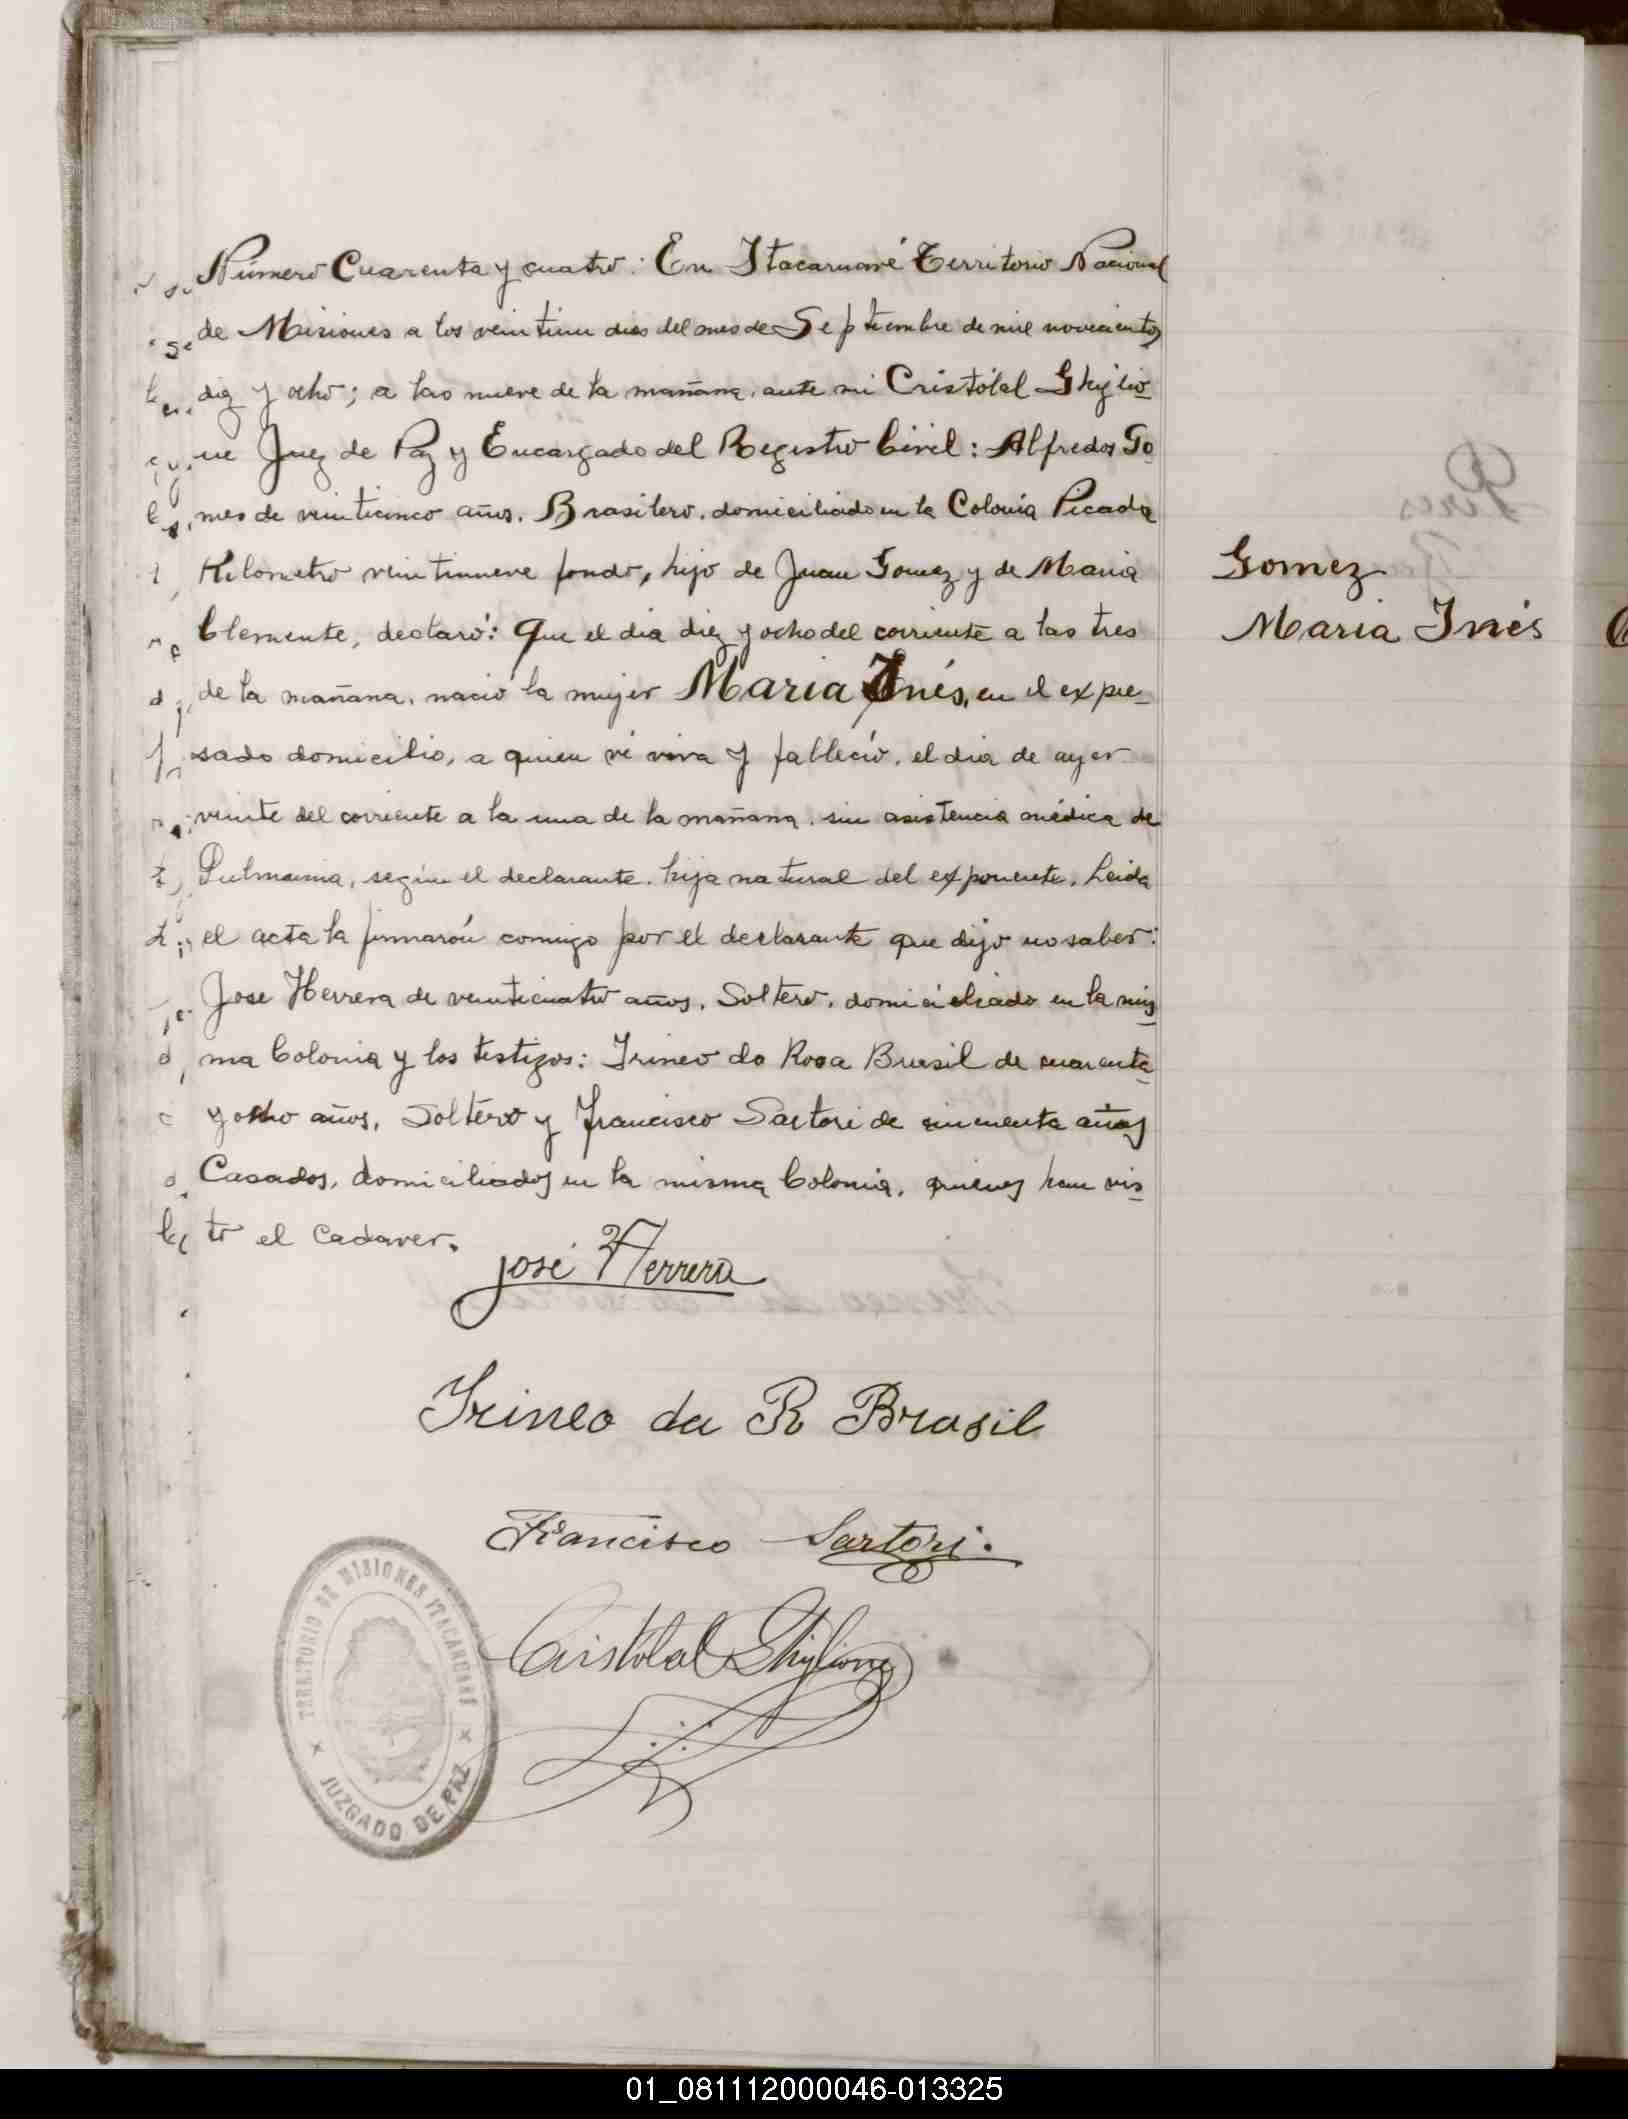 Número Cuarenta y cuatro: En Itacaruaré Territorio Nacional
de Misiones a los veintiun dias del mes de Septiembre de mil novecientos
diez y ocho; a las nueve de la mañana, ante mi Cristóbal Ghiglio
ne Juez de Paz y Encargado del Registro Civil: Alfredos Go
mes de veinticinco años, Brasilero, domiciliado en la Colonia Picada
Kilometro veintinueve fondo, hijo de Juan Gomez y de Maria
Clemente, declaró: Que el dia diez y ocho del corriente a las tres
de la mañana, nació la mujer Maria Inés, en el expre-
sado domicilio, a quien ví viva y falleció, el dia de ayer
veinte del corriente a la una de la mañana, sin asistencia médica de
segun el declarante, hija natural del exponente, Leida
el acta la firmarón comigo por el declarante que dijo no saber:
Jose Herrera de veinticuatro años, Soltero, domiciliado en la mis
ma Colonia y los testigos: Irineo da Rosa Brasil de cuarenta
y ocho años, Soltero y Francisco Sartori de cincuenta años
Casados, domiciliados en la misma Colonia, quienes han vis
to el Cadaver.
Gomez
Maria Inés
José Herrera
Irineo da R Brasil
Francisco Sartori.
Cristóbal Ghiglione
TERRITORIO DE MISIONES ITACARUARE
JUZGADO DE PAZ
01_081112000046-013325